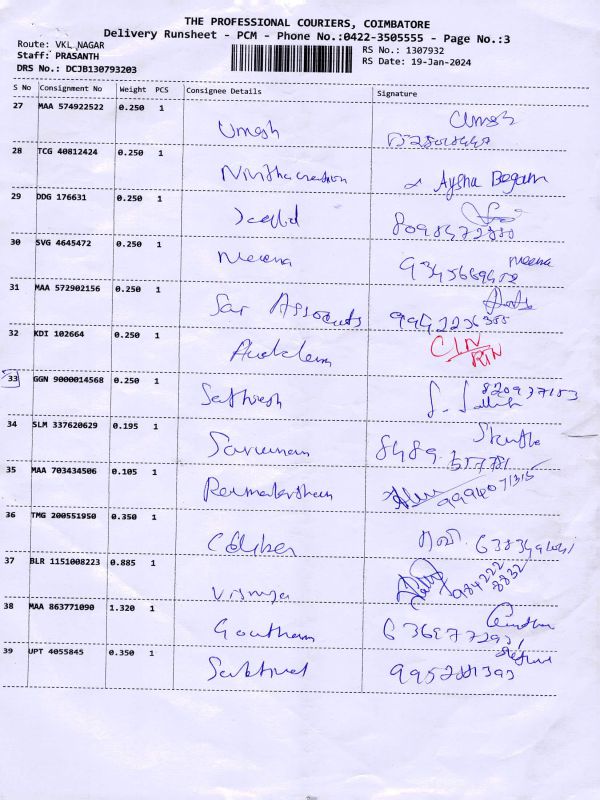 THE PROFESSIONAL COURIERS, COIMBATORE
Delivery Runsheet - PCM - Phone No.:0422-3505555 - Page No.:3
Route: VKL NAGAR
RS No.: 1307932
Staff: PRASANTH
RS Date: 19-Jan-2024
DRS No.: DCJB130793203
S No Consignment No Weight PCS Consignee Details Signature
27 MAA 574922522 0.250 1
Umesh Umesh
28 TCG 40812424 0.250 1
Aysha Begam
29 DDG 176631 0.250 1
30 SVG 4645472 0.250 1
Meena Meena
31 MAA 572902156 0.250 1
Sar Associats
32 KDI 102664 0.250 1
CLN
RTN
33 GGN 9000014568 0.250 1
Sathish
34 SLM 337620629 0.195 1
Saravanan
35 MAA 703434506 0.105 1
9994071315
36 TMG 200551950 0.350 1
37 BLR 1151008223 0.885 1
984222
8832
38 MAA 863771090 1.320 1
Goutham
39 UPT 4055845 0.350 1
Sakthivel